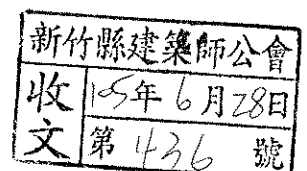 新竹縣建築師公會
收文
105年6月28日
第436號